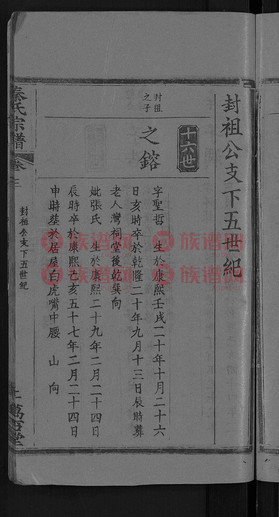 封祖公支下五世紀
十六世
封祖
之子
之鎔
字聖哲 生於康熙壬戌二十年十月二十六
日亥時卒於乾隆二十年九月十三日辰時葬
老人灣祠堂後乾巽向
妣張氏 生於康熙二十九年二月二十四日
辰時卒於康熙己亥五十七年二月二十四日
申時葬於居屋白虎嘴中腰 山 向
秦氏宗譜
卷三
封祖公支下五世紀